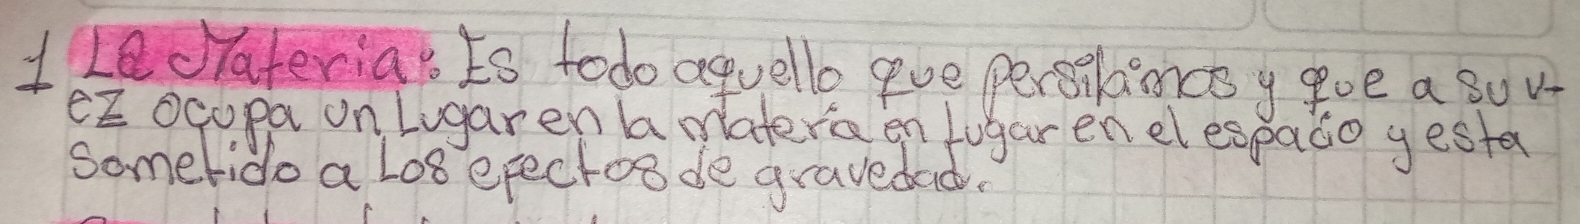 1 La Materia: Es todo aquello que persibimos y que a su v-
ez ocupa un Lugar en la materia en Lugar en el espacio y esta
sometido a Los efectos de gravedad.